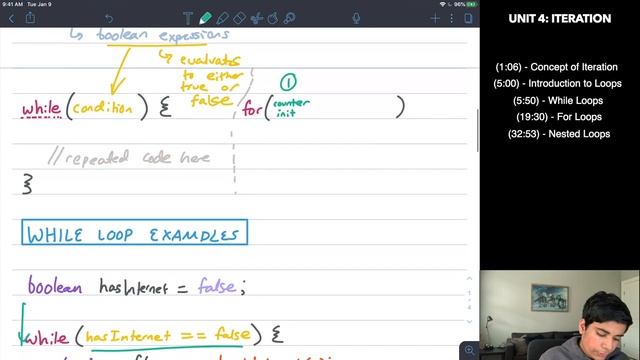 9:41 AM Tue Jan 9
96%
↳ boolean expressions
↳ evaluates
to either
true or
false
①
while (condition) {
for(counter
init
)
//repeated code here
}
WHILE LOOP EXAMPLES
boolean hasInternet = false;
while (hasInternet == false) {
UNIT 4: ITERATION
(1:06) - Concept of Iteration
(5:00) - Introduction to Loops
(5:50) - While Loops
(19:30) - For Loops
(32:53) - Nested Loops